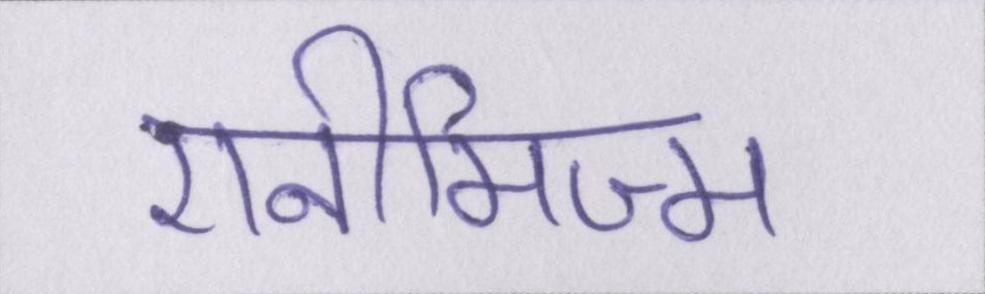 एनीमिज्म